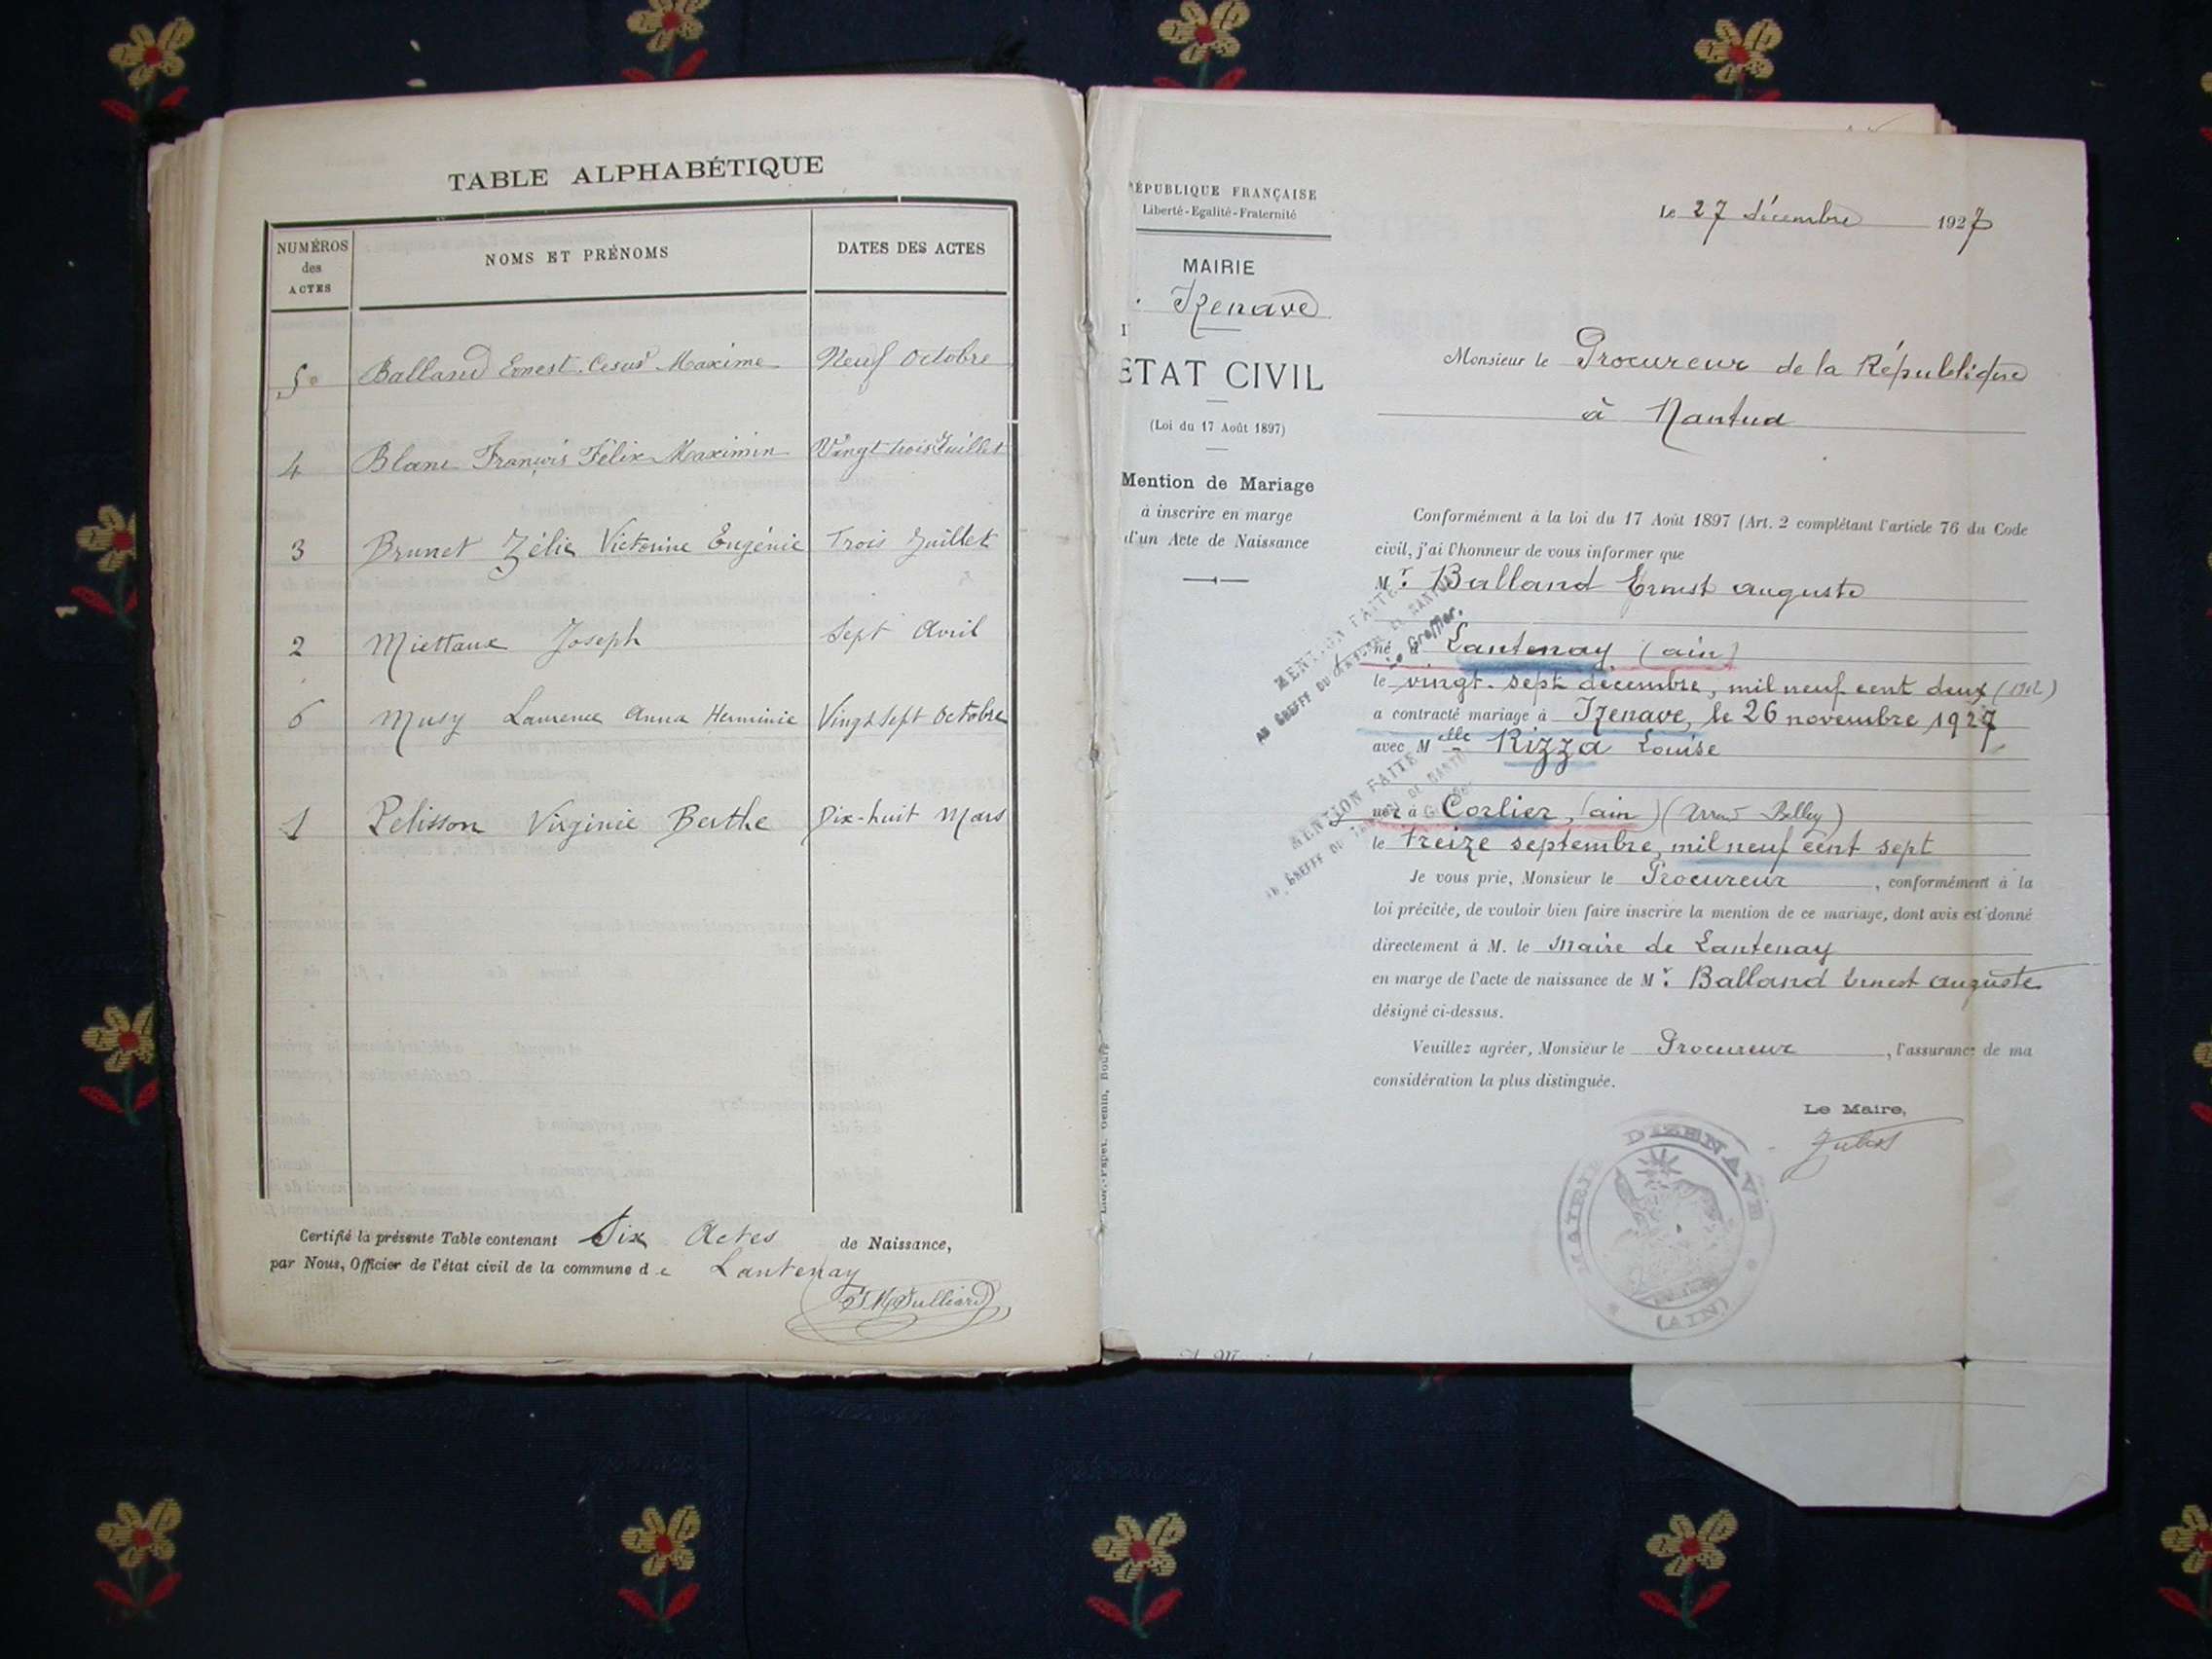 TABLE ALPHABÉTIQUE
NUMÉROS des ACTES
NOMS ET PRÉNOMS
DATES DES ACTES
5 Balland Ernest Cesus Maxime Neuf Octobre
4 Blanc François Félix Maximin Vingt trois Juillet
3 Brunet Zélie Victorine Eugénie Trois Juillet
2 Miettaux Joseph Sept Avril
6 Musy Laurence Anna Herminie Vingt Sept Octobre
1 Pelisson Virginie Berthe Dix-huit Mars
Certifié la présente Table contenant Six Actes de Naissance,
par Nous, Officier de l'état civil de la commune de Lantenay
RÉPUBLIQUE FRANÇAISE
Liberté-Egalité-Fraternité
MAIRIE
Izenave
ETAT CIVIL
(Loi du 17 Août 1897)
Mention de Mariage
à inscrire en marge
d'un Acte de Naissance
Le 27 décembre 1927
Monsieur le Procureur de la République
à Nantua
Conformément à la loi du 17 Août 1897 (Art. 2 complétant l'article 76 du Code
civil, j'ai l'honneur de vous informer que
Mr. Balland Ernest auguste
né à Lantenay (ain)
le vingt-sept décembre, mil neuf cent deux (1902)
a contracté mariage à Izenave, le 26 novembre 1927
avec Melle Rizza Louise
née à Corlier, (ain) (Arrond Belley)
le treize septembre, mil neuf cent sept
Je vous prie, Monsieur le Procureur, conformément à la
loi précitée, de vouloir bien faire inscrire la mention de ce mariage, dont avis est donné
directement à M. le Maire de Lantenay
en marge de l'acte de naissance de Mr. Balland Ernest auguste
désigné ci-dessus.
Veuillez agréer, Monsieur le Procureur, l'assurance de ma
considération la plus distinguée.
Le Maire,
MENTION FAITE
AU GREFFE DU TRIBUNAL DE NANTUA
Le Greffier.
MENTION FAITE
AU GREFFE DU TRIBUNAL DE NANTUA
MAIRIE D'IZENAVE
(AIN)